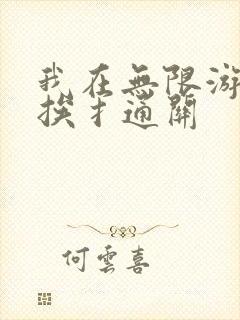 我在無限游
挨扌通關
何雲喜